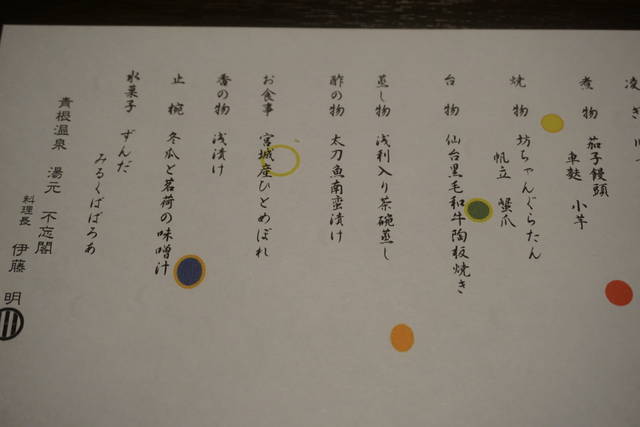 凌ぎ
煮物 茄子饅頭
車麩 小芋
焼物 坊ちゃんぐらたん
帆立 蟹爪
台物 仙台黒毛和牛陶板焼き
蒸し物 浅利入り茶碗蒸し
酢の物 太刀魚南蛮漬け
お食事 宮城産ひとめぼれ
香の物 浅漬け
止椀 冬瓜と茗荷の味噌汁
水菓子 ずんだ
みるくばばろあ
青根温泉 湯元 不忘閣
料理長 伊藤 明